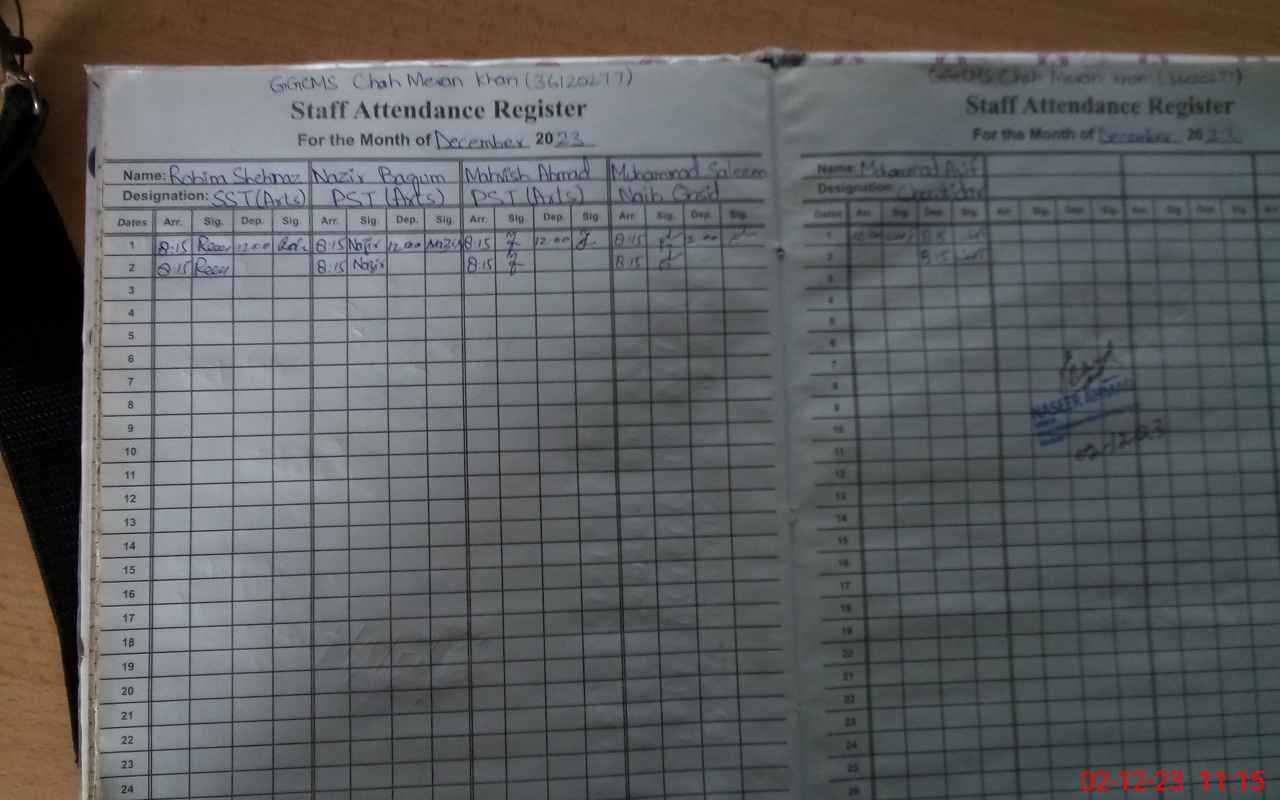 GGCMS Chah Mewan Khan (36120277)
Staff Attendance Register
For the Month of December 2023
Name: Robina Shehnaz Nazir Bagum Mahvish Ahmad Muhammad Saleem
Designation: SST(Arts) PST (Arts) PST (Arts) Naib Qasid
Dates Arr. Sig. Dep. Sig. Arr. Sig. Dep. Sig. Arr. Sig. Dep. Sig. Arr. Sig. Dep. Sig.
1 8:15 12:00 8:15 Nazir 12:00 Nazir 8:15 12:00 8:15
2 8:15 8:15 Nazir 8:15 8:15
3
4
5
6
7
8
9
10
11
12
13
14
15
16
17
18
19
20
21
22
23
24
GGCMS Chah Mewan Khan (36120277)
Staff Attendance Register
For the Month of December 2023
Name: Muhammad Asif
Designation: Chowkidar
Dates Arr. Sig. Dep. Sig. Arr. Sig. Dep. Sig. Arr. Sig. Dep. Sig.
1 8:15
2 8:15
3
4
5
6
7
8
9
10
11
12
13
14
15
16
17
18
19
20
21
22
23
24
25
26
02-12-23
02-12-23 11:15